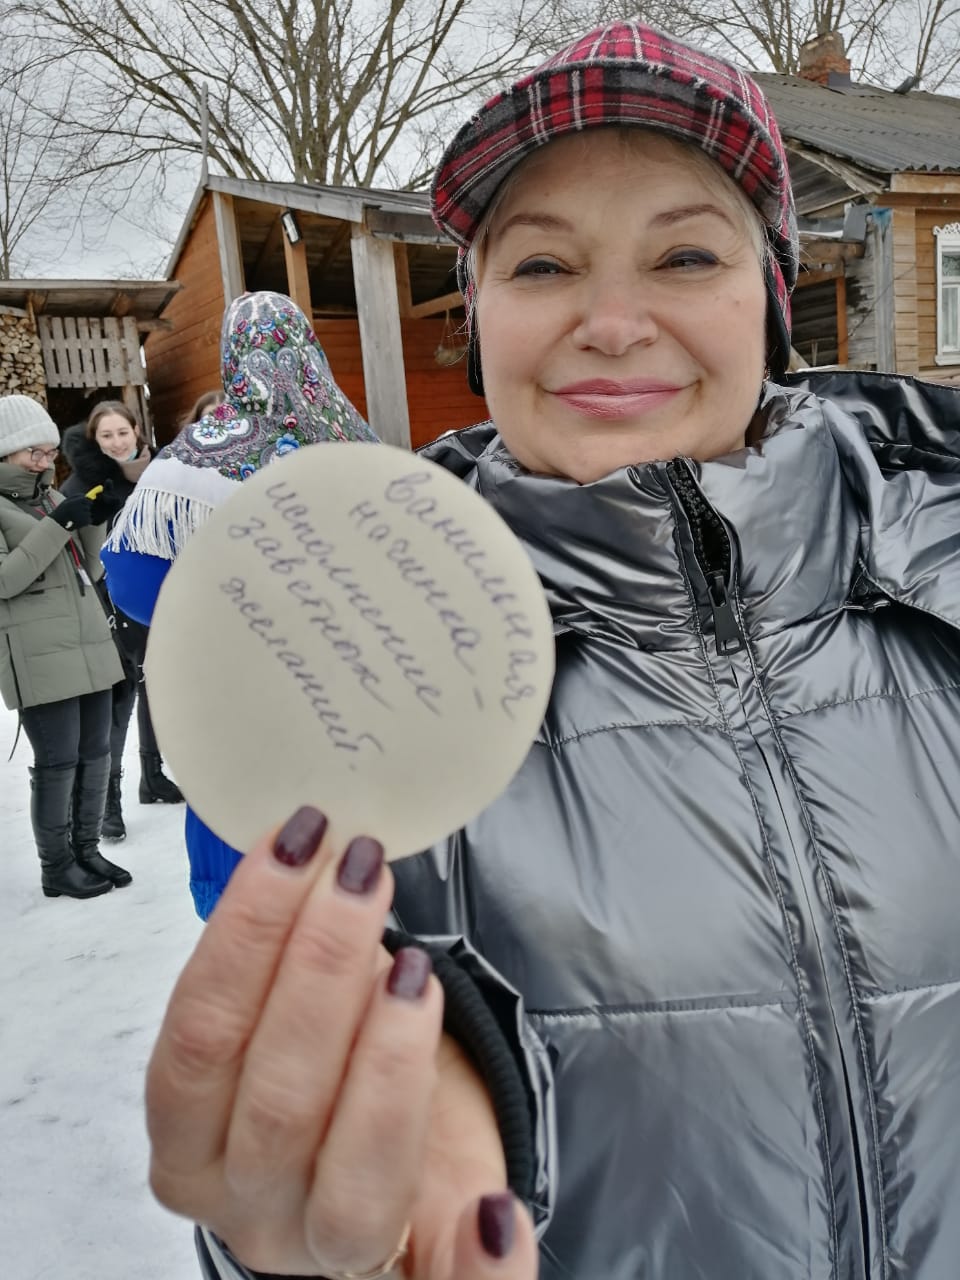 ванильная
начинка -
исполнение
заветных
желаний.